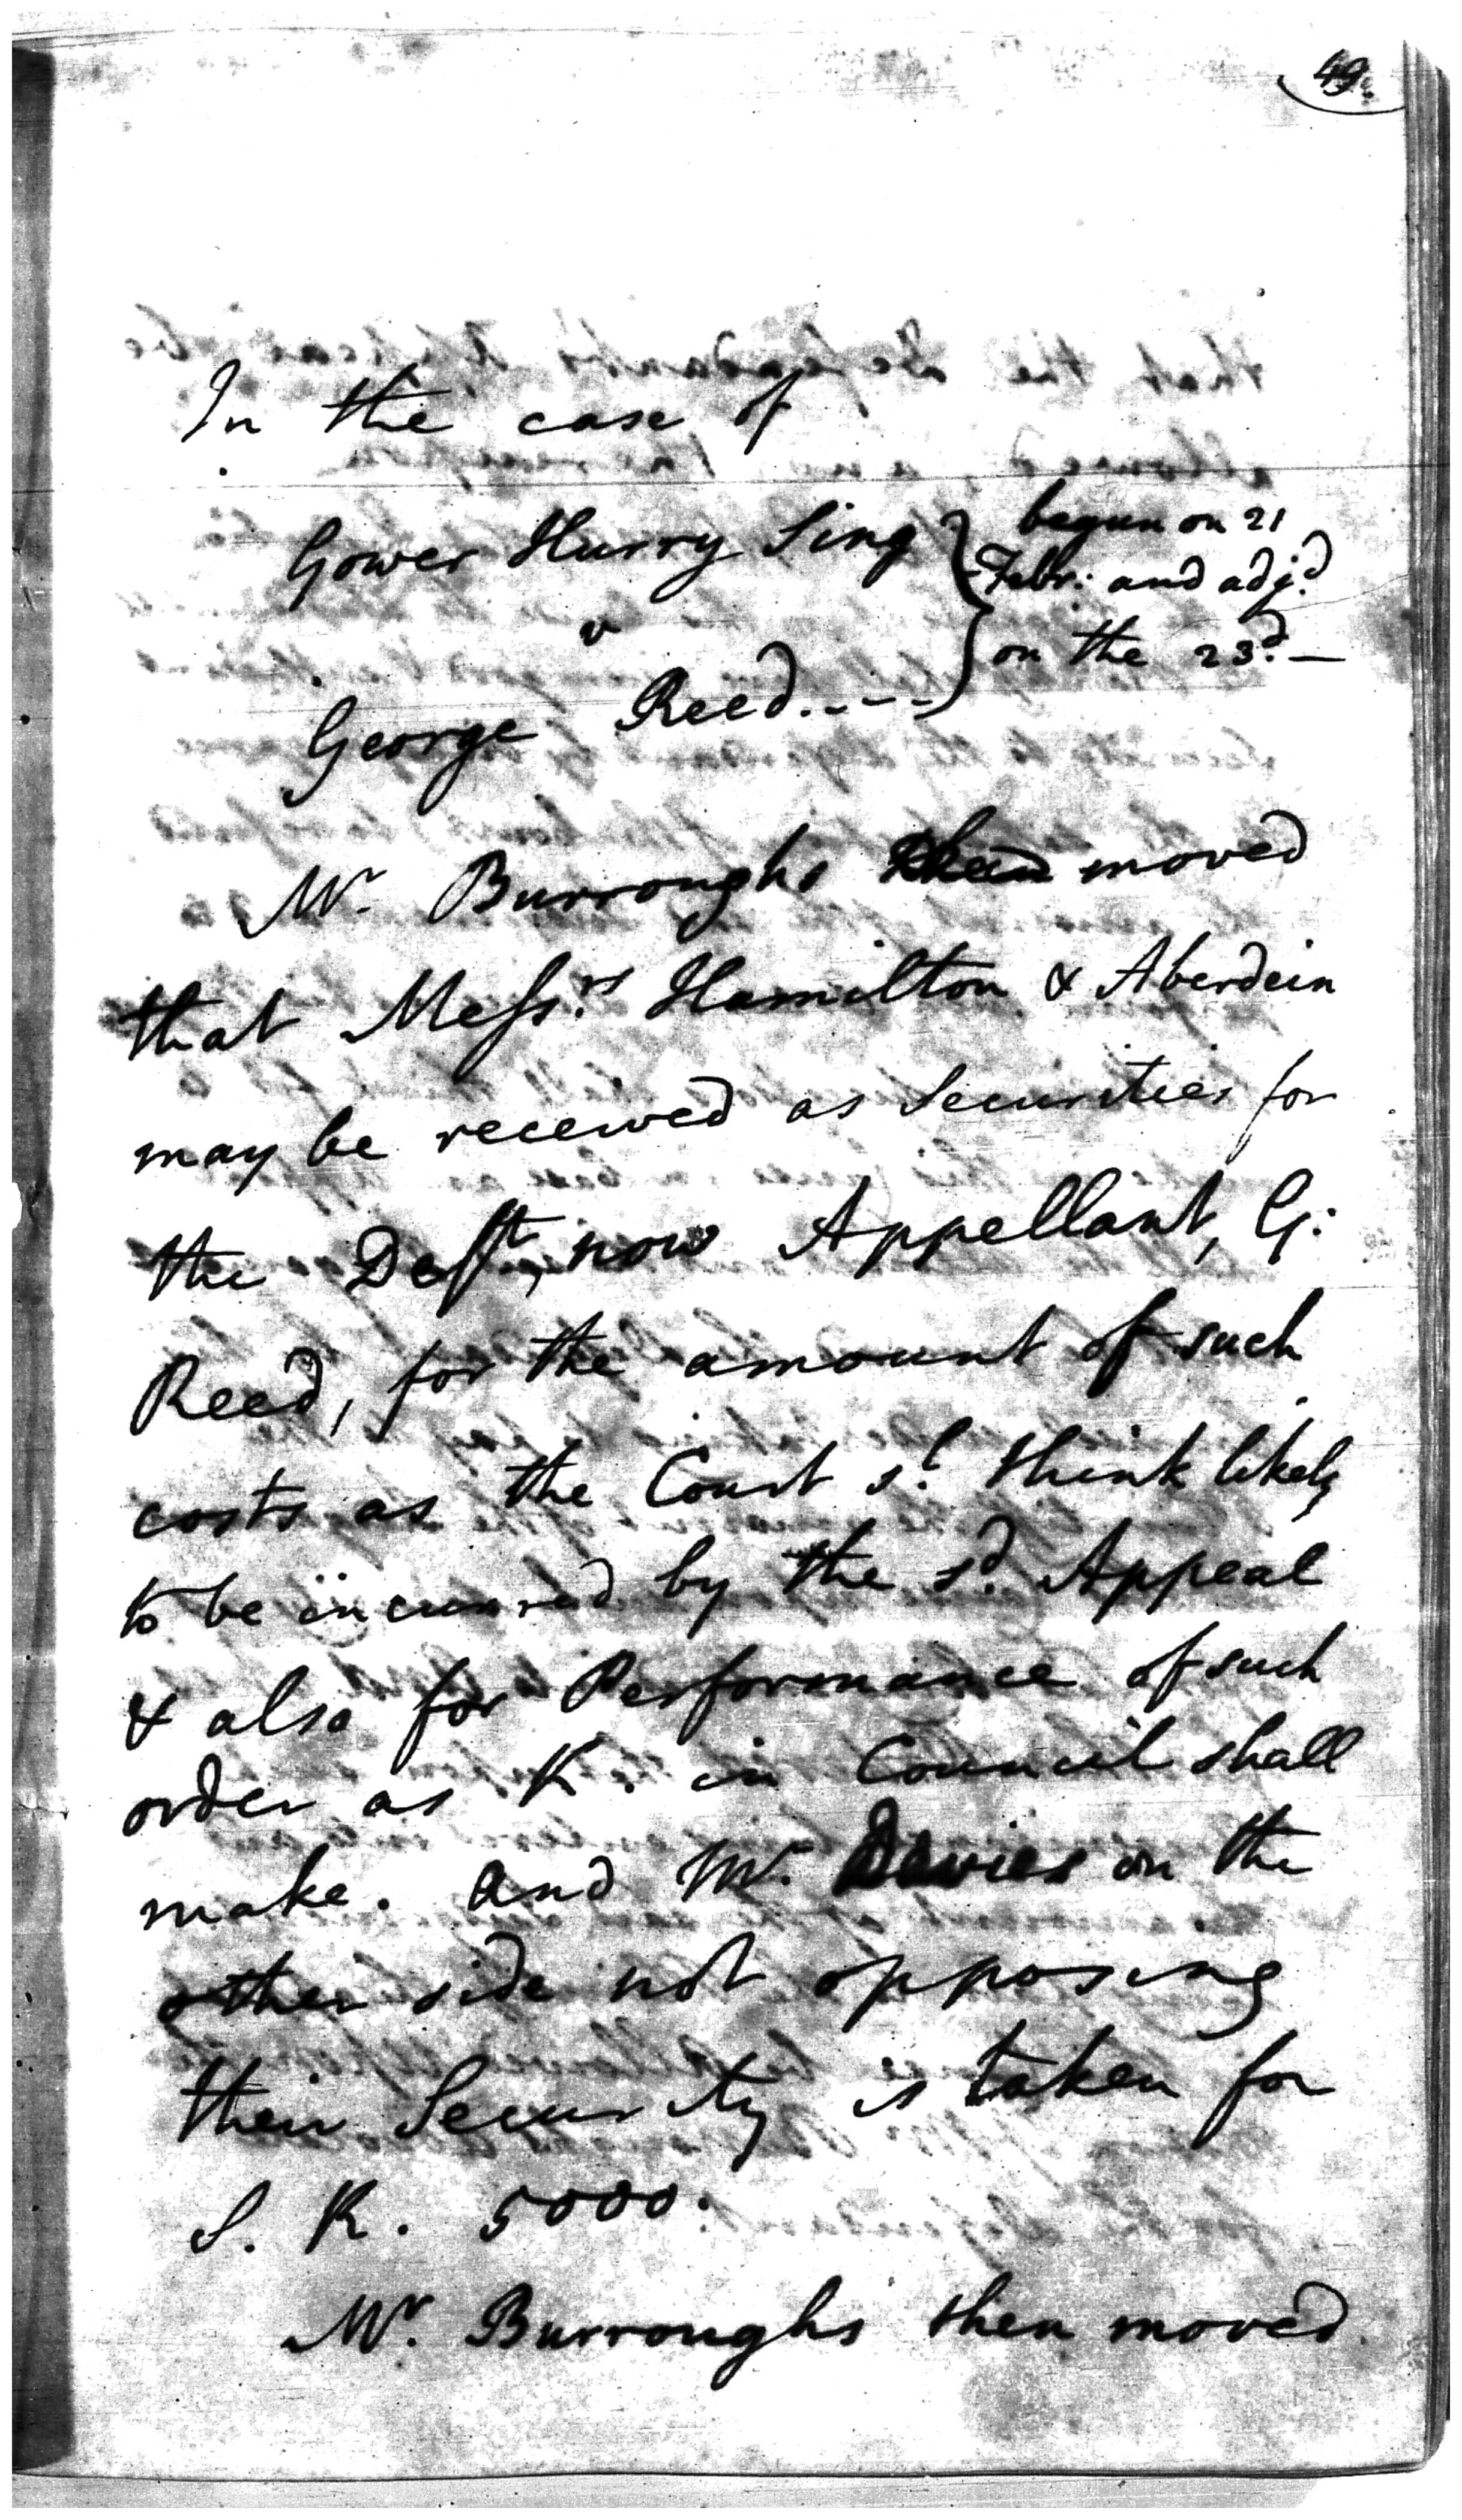 49.
In the case of
Gower Hurry Sing } begun on 21
Febr: and adj.d
v
on the 23.d —
George Reed.----
Mr. Burroughs moved
that Messrs. Hamilton & Aberdein
may be received as Securities for
the Deft, now Appellant, G:
Reed, for the amount of such
costs as the Court sd. think likely
to be incurred by the sd. Appeal
& also for Performance of such
order as K. in Council shall
make. And Mr. Davies on the
other side not opposing
their Security is taken for
S. R. 5000.
Mr. Burroughs then moved